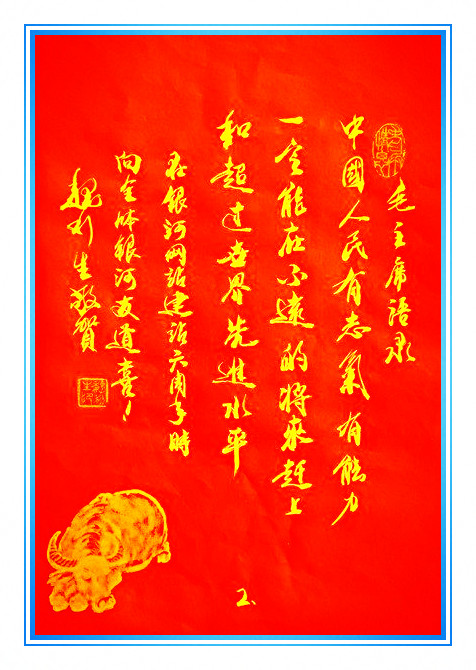 毛主席語录
中國人民有志氣有能力
一定能在不遠的将來趕上
和超过世界先進水平
在银河网站建站六周年時
向全体银河友道喜！
利生敬賀
2、